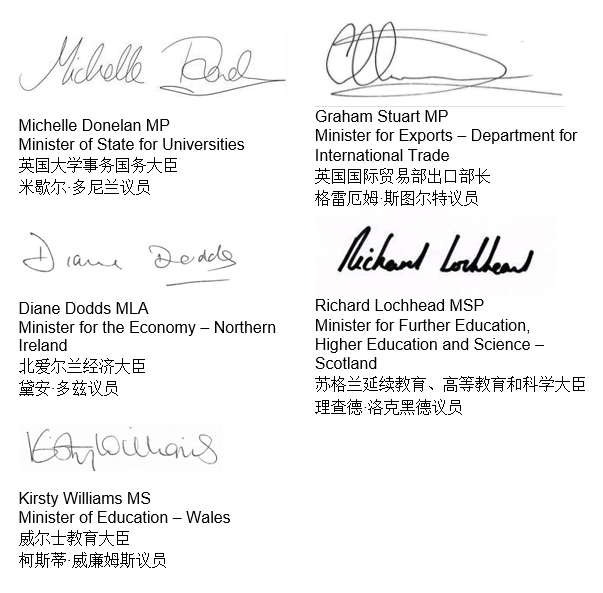 Michelle Donelan MP
Minister of State for Universities
英国大学事务国务大臣
米歇尔·多尼兰议员
Graham Stuart MP
Minister for Exports – Department for
International Trade
英国国际贸易部出口部长
格雷厄姆·斯图尔特议员
Diane Dodds
Diane Dodds MLA
Minister for the Economy – Northern
Ireland
北爱尔兰经济大臣
黛安·多兹议员
Richard Lochhead
Richard Lochhead MSP
Minister for Further Education,
Higher Education and Science –
Scotland
苏格兰延续教育、高等教育和科学大臣
理查德·洛克黑德议员
Kirsty Williams
Kirsty Williams MS
Minister of Education – Wales
威尔士教育大臣
柯斯蒂·威廉姆斯议员